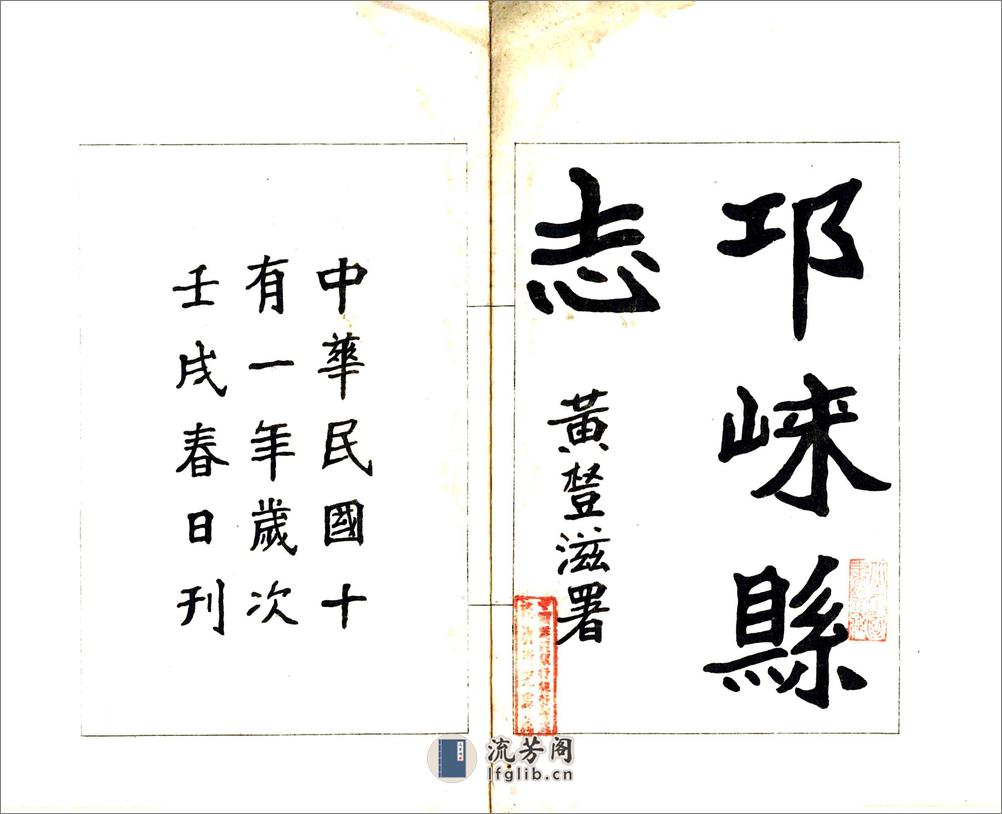 邛崍縣
志
黃豋滋署
中華民國十
有一年歲次
壬戌春日刊
流芳阁
lfglib.cn